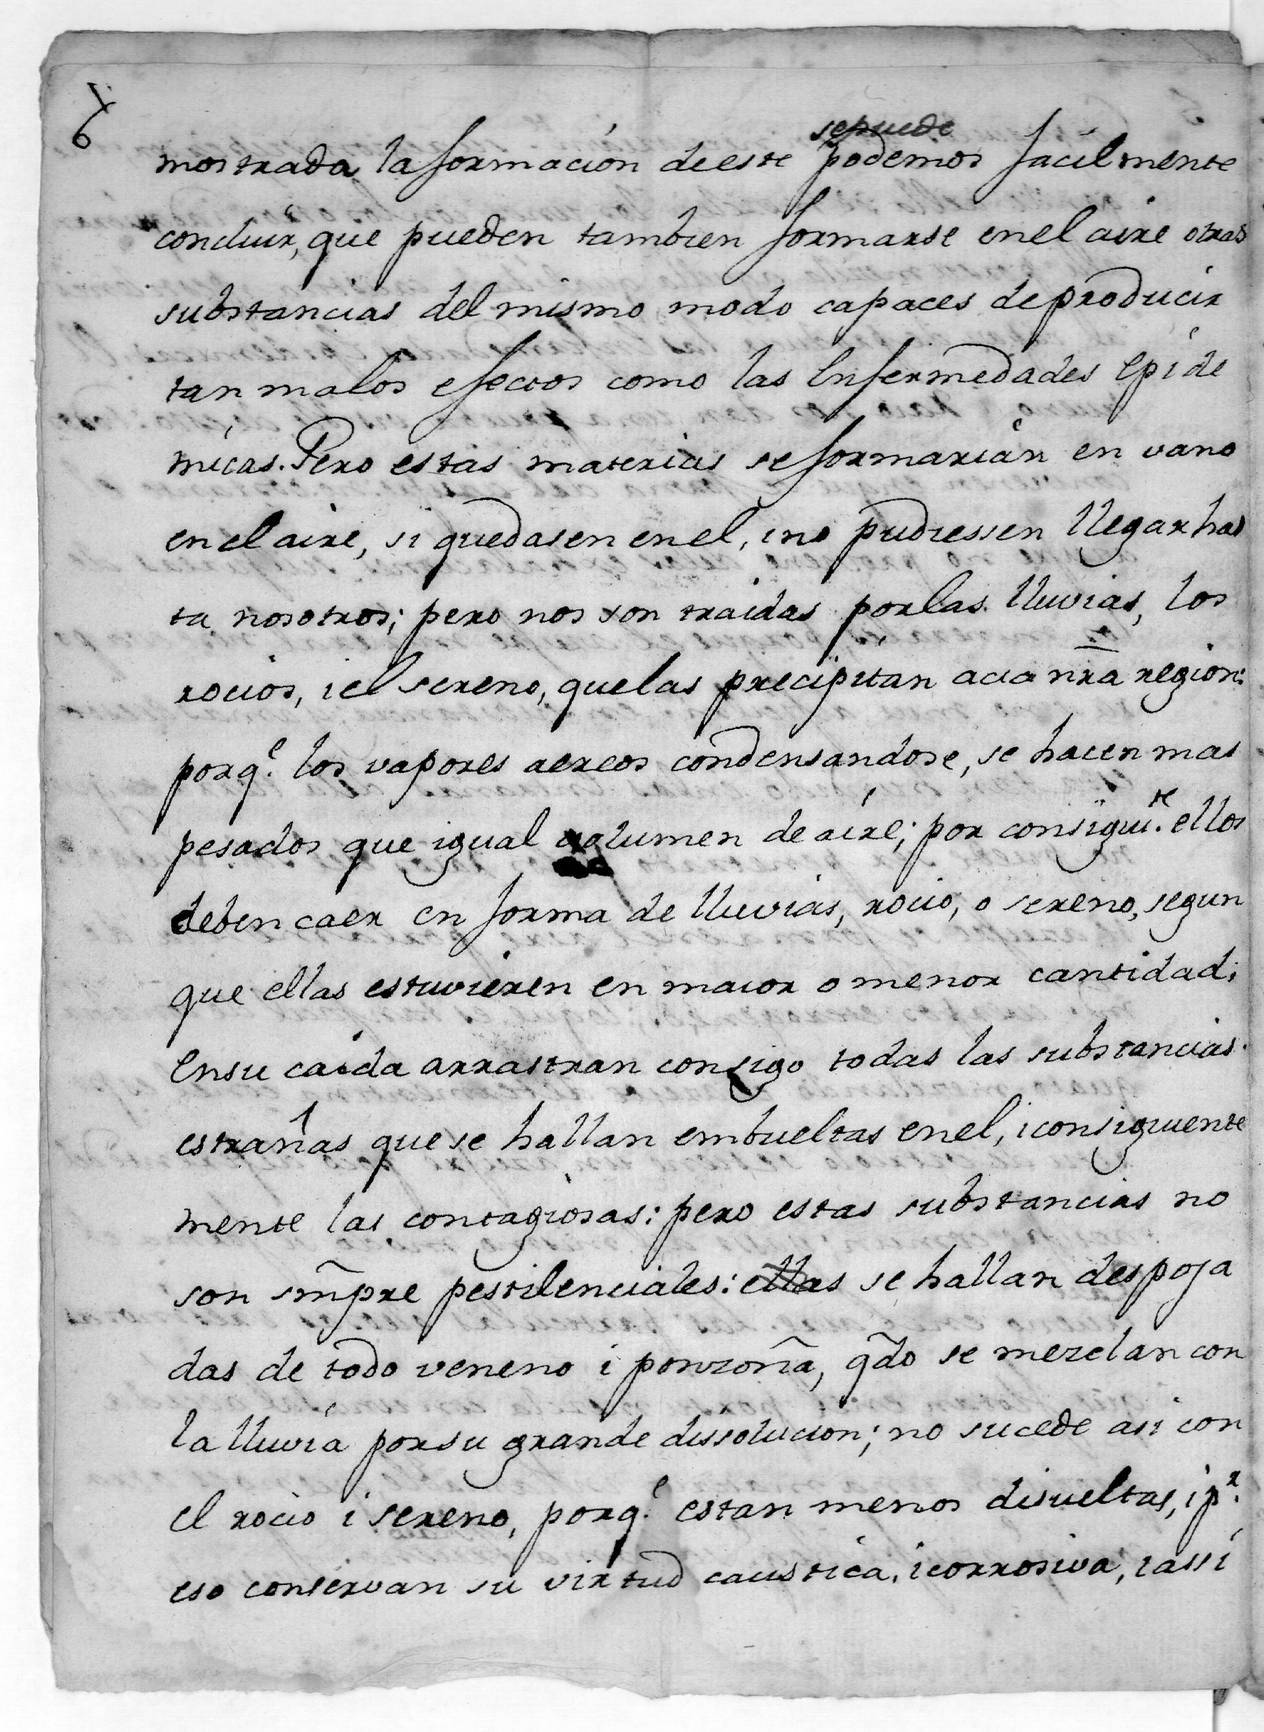 6
sepuede
mostrada la formación de este podemos facilmente
concluir, que pueden tambien formarse en el aire otras
substancias del mismo modo capaces de producir
tan malos efectos como las Enfermedades Epide
micas. Pero estas materias se formarián en vano
en el aire, si quedasen en el, i no pudiessen llegar has
ta nosotros; pero nos son traidas por las lluvias, los
rocios, i el sereno, que las precipitan acia nr̃a region:
porq.ᵉ los vapores aereos condensandose, se hacen mas
pesados que igual volumen de aíre; por consigui.ᵗᵉ ellos
deben caer en forma de lluvias, rocio, o sereno, segun
que ellas estuvieren en maior o menor cantidad;
En su caida arrastran consigo todas las substancias
estrañas que se hallan embueltas en el, i consiguiente
mente las contagiosas: pero estas substancias no
son sm̃pre pestilenciales: ellas se hallan despoja
das de todo veneno i ponzoña, qdo se mezclan con
la lluvía por su grande dissolucion; no sucede asi con
el rocio i sereno, porq.ᵉ estan menos disueltas, i p.ʳ
eso conservan su virtud caustica, i corrosiva; i assi